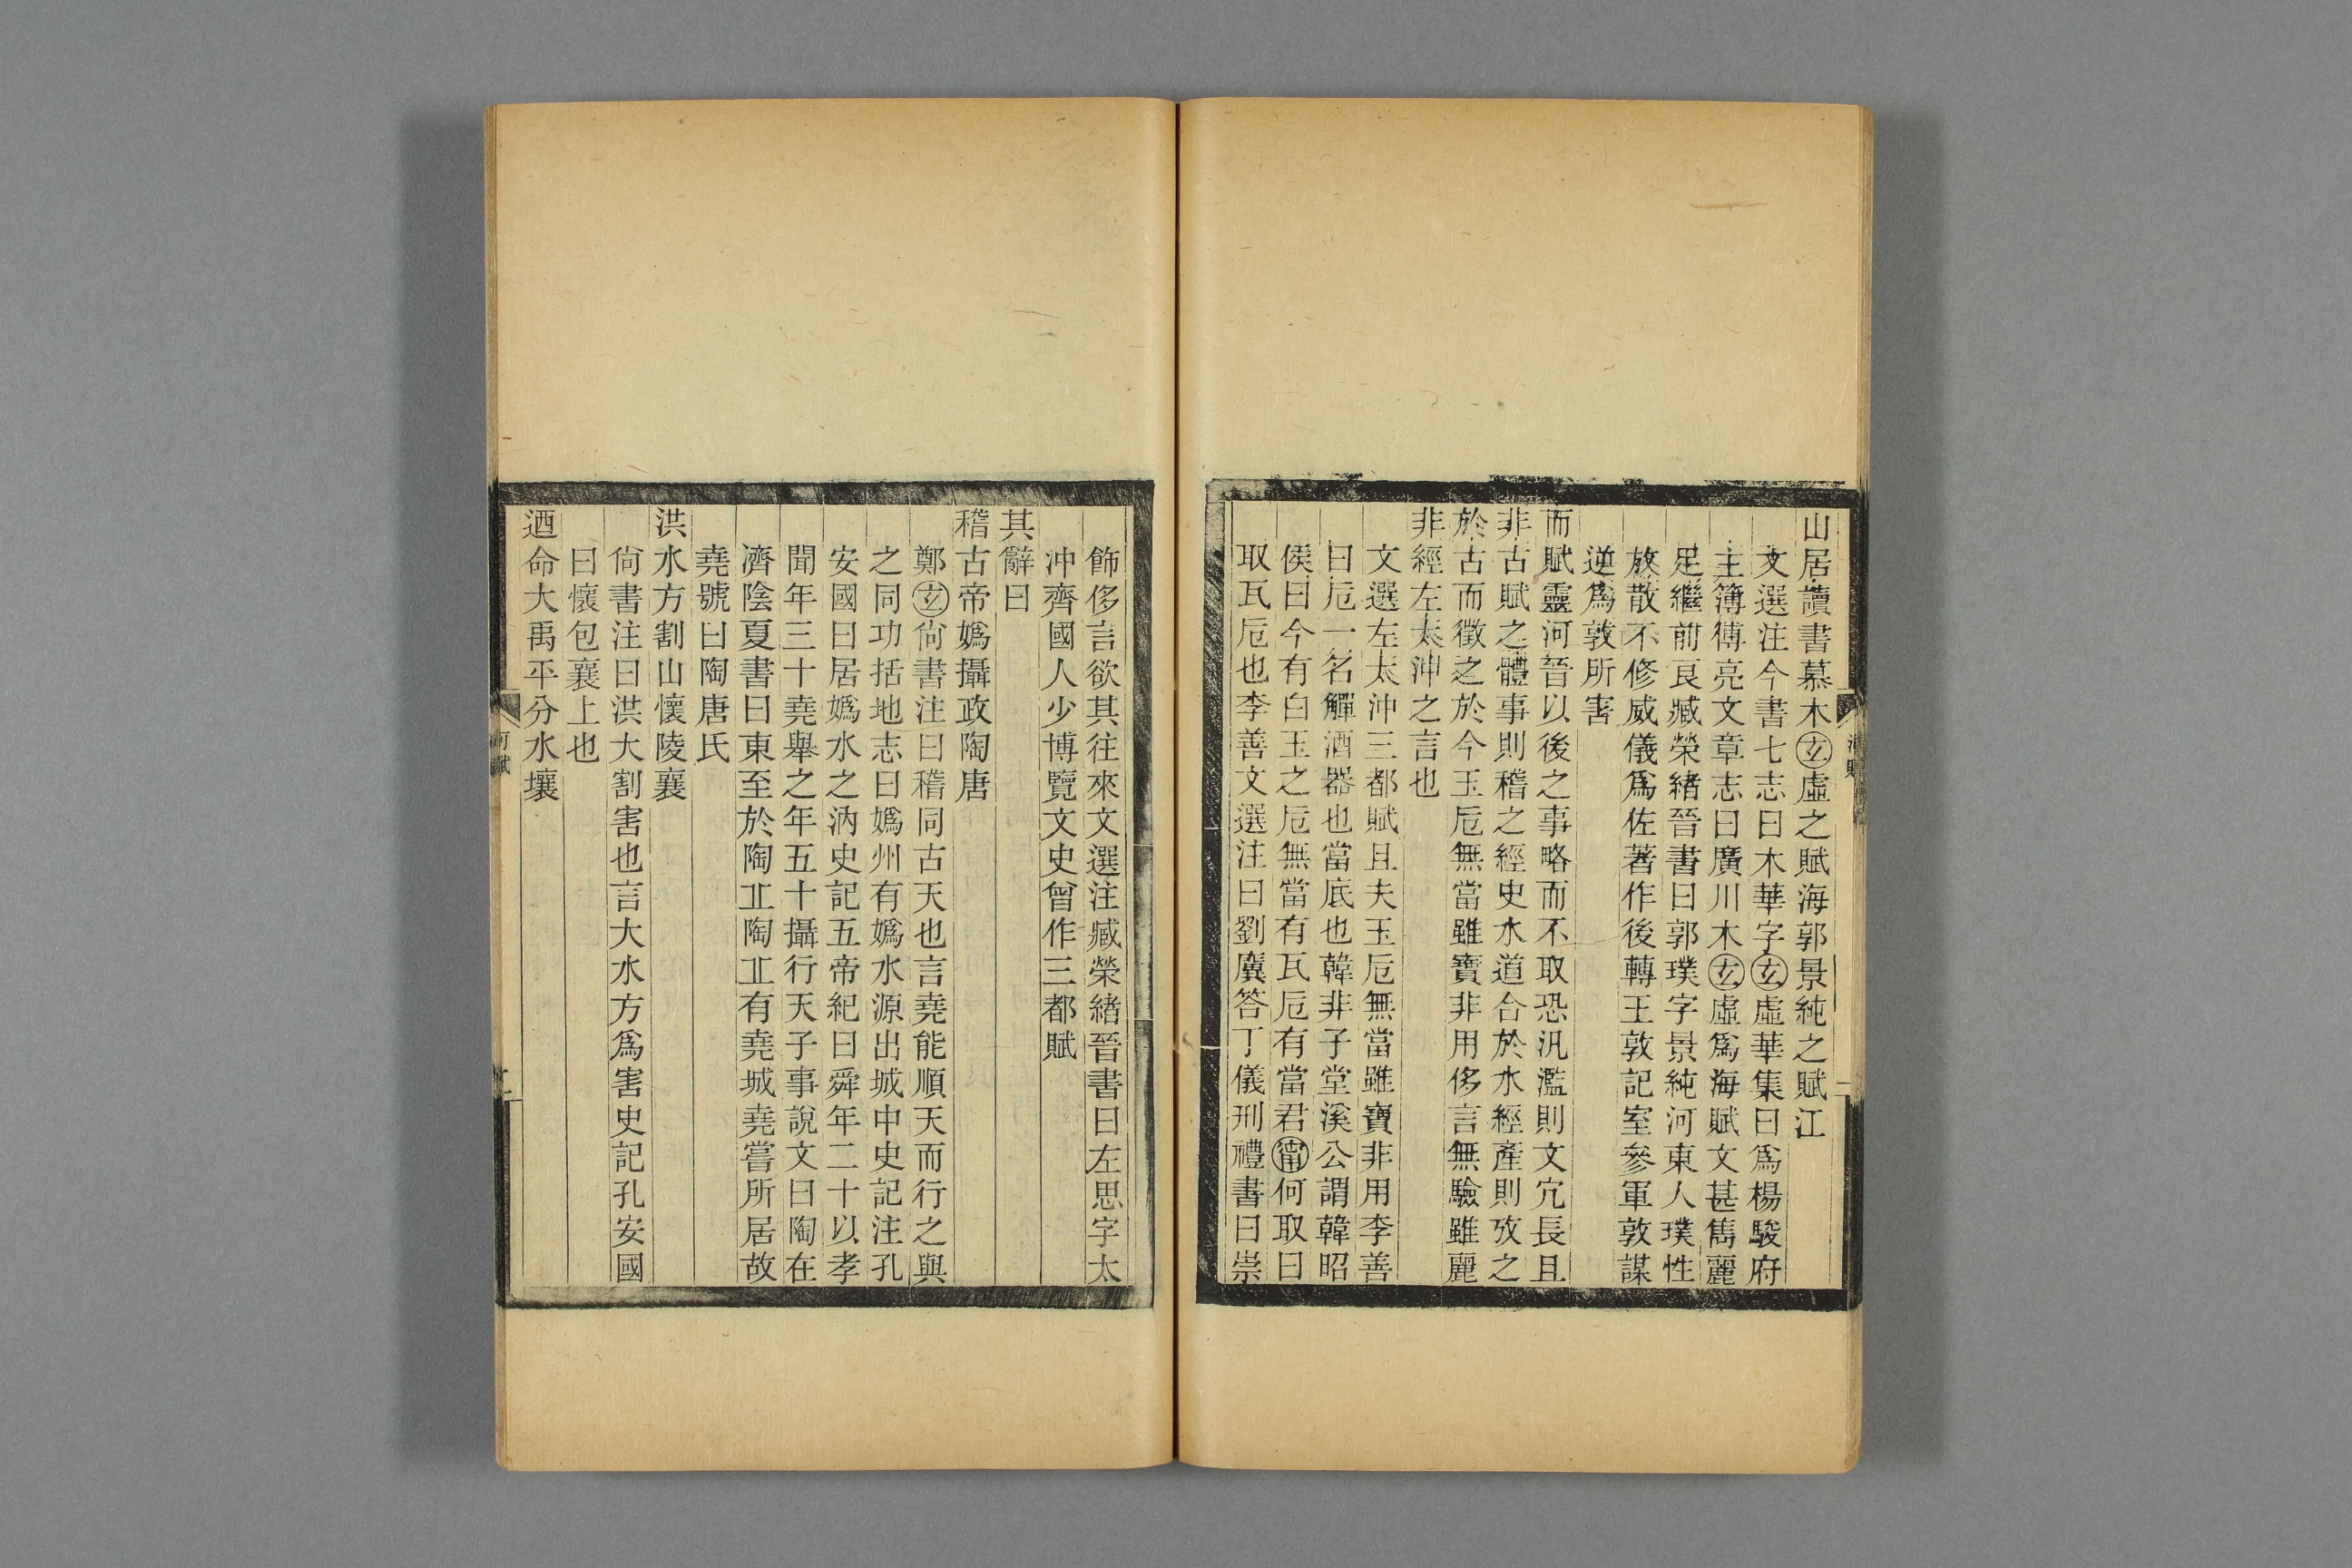 山居讀書慕木玄虛之賦海郭景純之賦江
文選注今書七志曰木華字玄虛華集曰爲楊駿府
主簿傅亮文章志曰廣川木玄虛爲海賦文甚雋麗
足繼前良臧榮緒晉書曰郭璞字景純河東人璞性
放散不修威儀爲佐著作後轉王敦記室參軍敦謀
逆爲敦所害
而賦靈河晉以後之事略而不取恐汎濫則文宂長且
非古賦之體事則稽之經史水道合於水經產則攷之
於古而徵之於今玉卮無當雖寶非用侈言無驗雖麗
非經左太沖之言也
文選左太沖三都賦且夫玉卮無當雖寶非用李善
曰卮一名觶酒器也當底也韓非子堂溪公謂韓昭
侯曰今有白玉之卮無當有瓦卮有當君甯何取曰
取瓦卮也李善文選注曰劉廙答丁儀刑禮書曰崇
飾侈言欲其往來文選注臧榮緒晉書曰左思字太
沖齊國人少博覽文史曾作三都賦
其辭曰
稽古帝嬀攝政陶唐
鄭玄尙書注曰稽同古天也言堯能順天而行之與
之同功括地志曰嬀州有嬀水源出城中史記注孔
安國曰居嬀水之汭史記五帝紀曰舜年二十以孝
聞年三十堯舉之年五十攝行天子事說文曰陶在
濟陰夏書曰東至於陶丠陶丠有堯城堯嘗所居故
堯號曰陶唐氏
洪水方割山懷陵襄
尙書注曰洪大割害也言大水方爲害史記孔安國
曰懷包襄上也
迺命大禹平分水壤
河賦
二